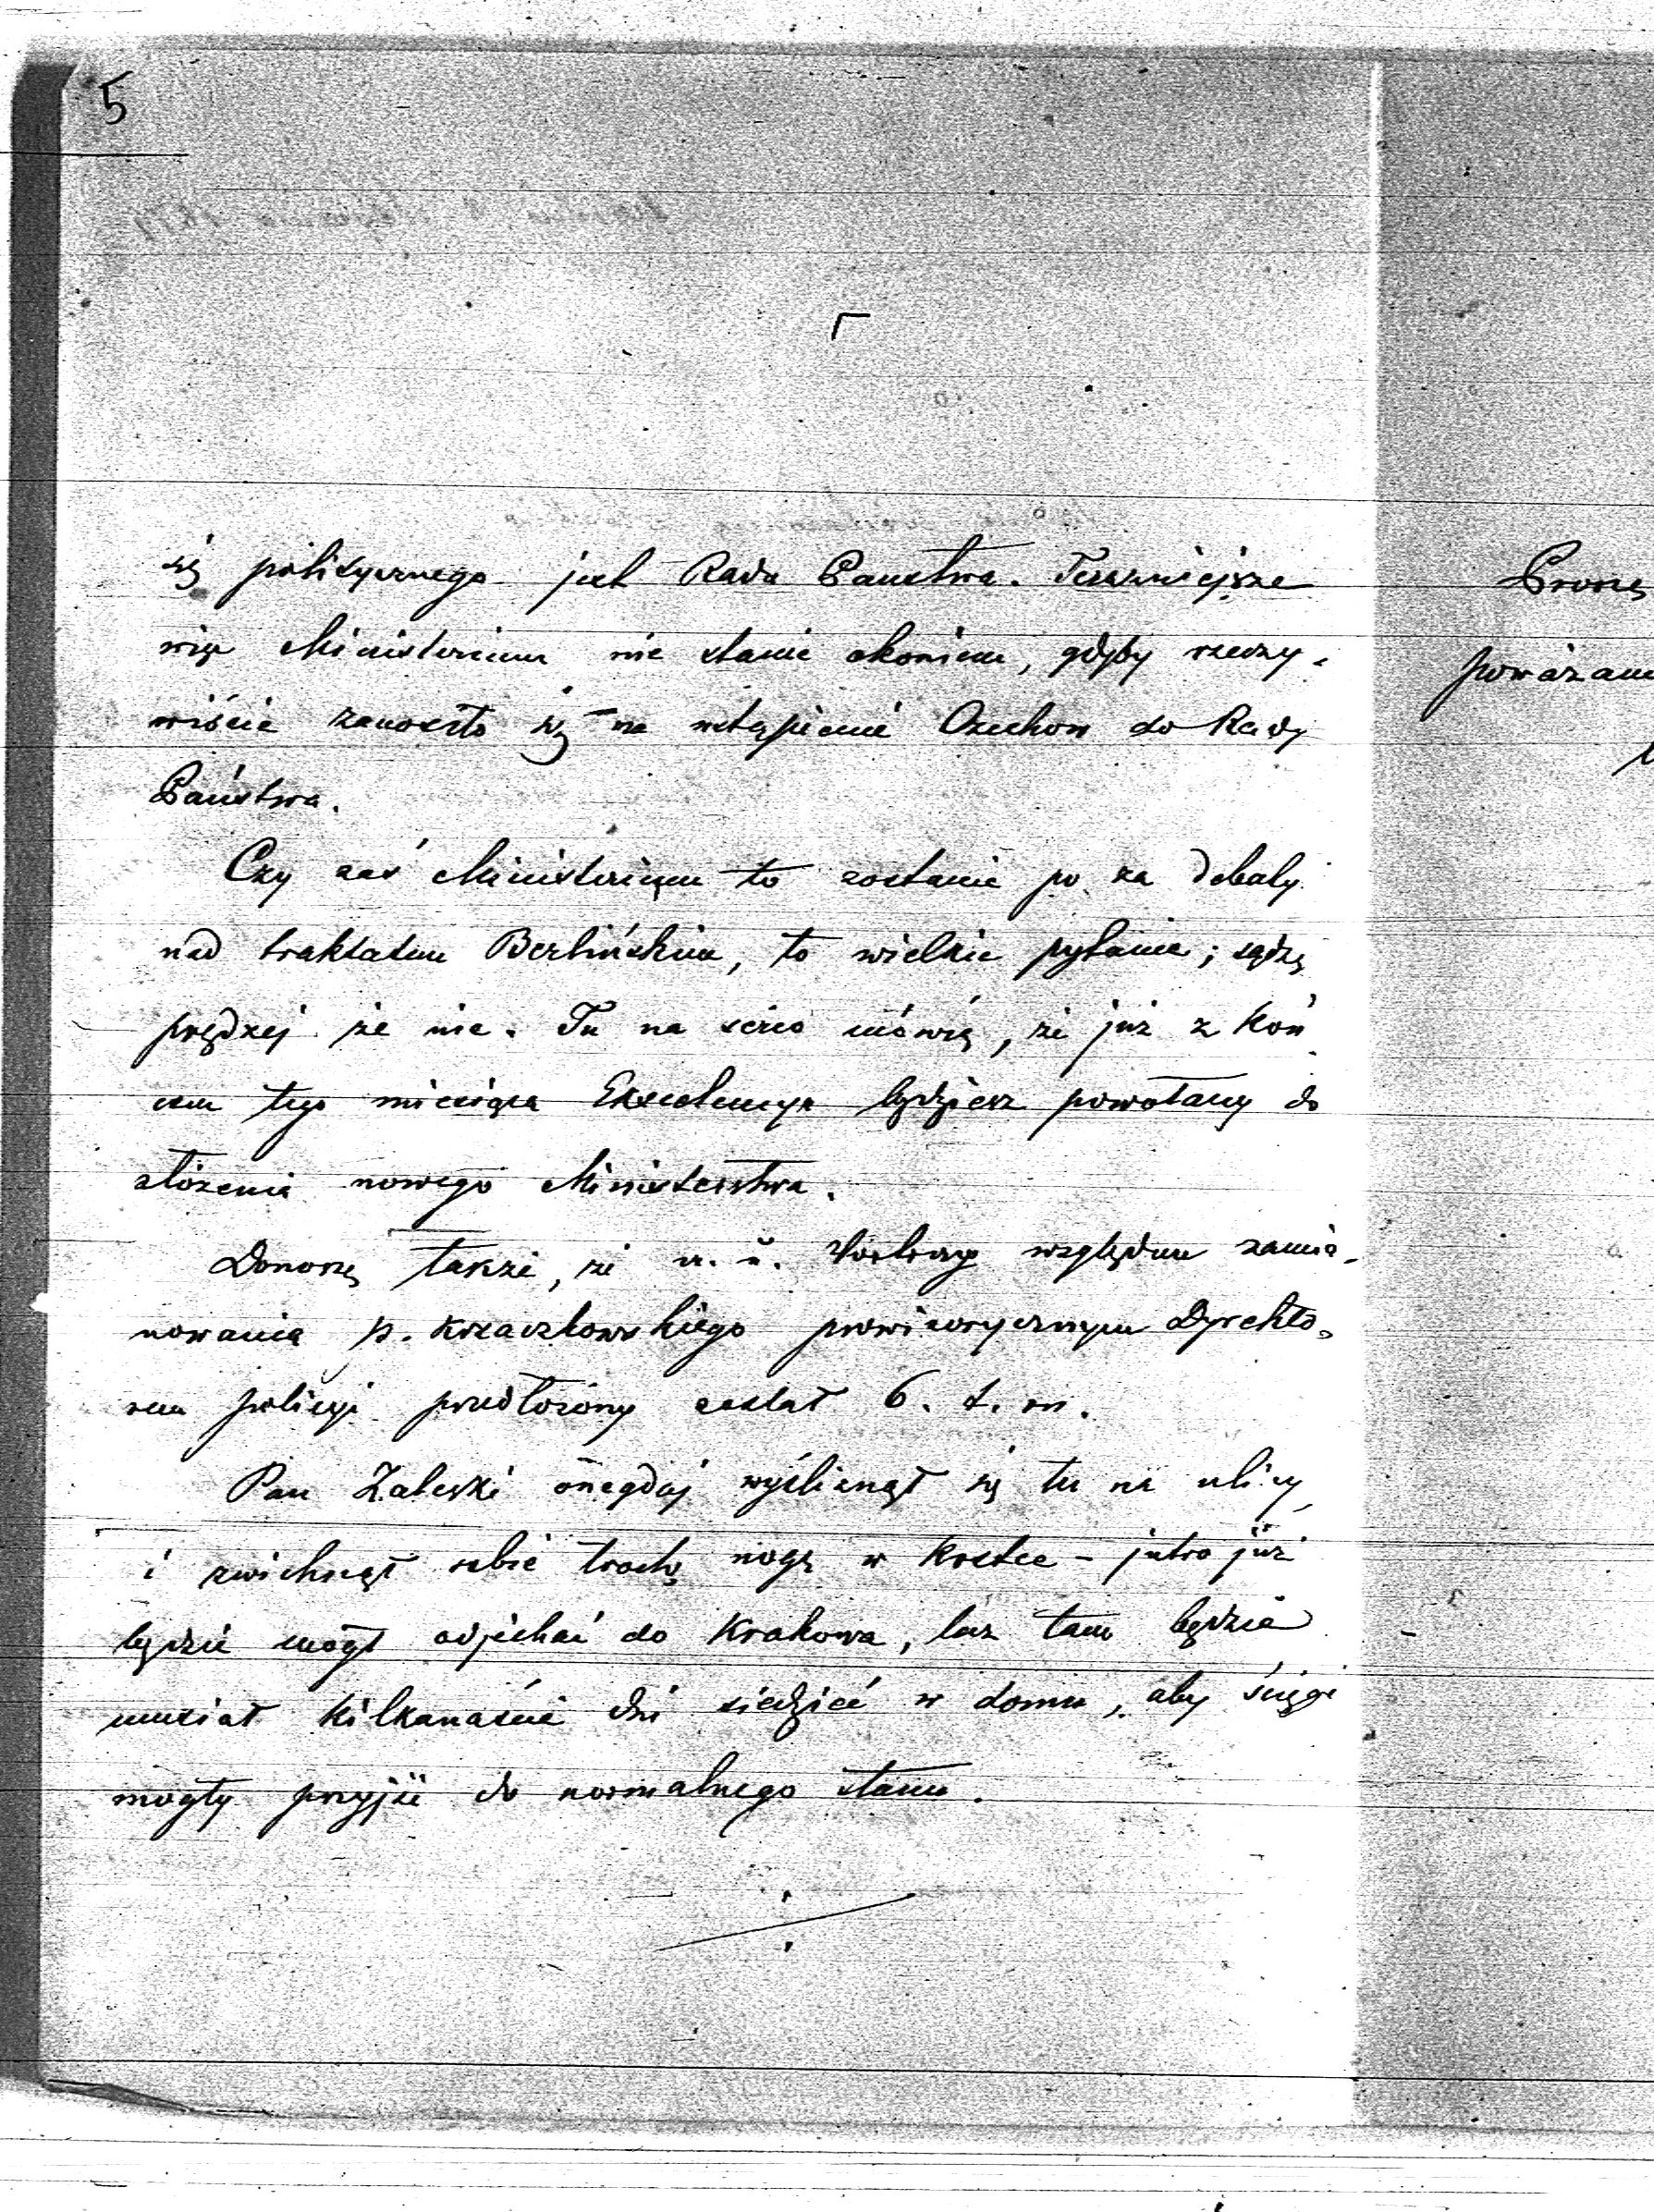 5
się politycznego jest Rada Państwa. Teraźniejsze
więc Ministerium nie stanie okoniem, gdyby rzeczy-
wiście zanosiło się na wstąpienie Czechów do Rady
Państwa.
Czy zaś Ministerium to zostanie po za debaty
nad traktatem Berlińskim, to wielkie pytanie; sądzę
prędzej że nie. Tu na serio mówią, że już z koń
cem tego miesiąca Excelencya będziesz powołany do
złożenia nowego Ministerstwa.
Donoszę także, że względem zamia-
nowania p. Krzaczkowskiego prowizorycznym Dyrekto-
rem policyi przedłożony został 6. t. m.
Pan Zaleski onegdaj wyśliznął się tu na ulicy
i zwichnął sobie trochę nogę w kostce – jutro już
będzie mógł odjechać do Krakowa, lecz tam będzie
musiał kilkanaście dni siedzieć w domu, aby ścięgi
mogły przyjść do normalnego stanu.
Proszę